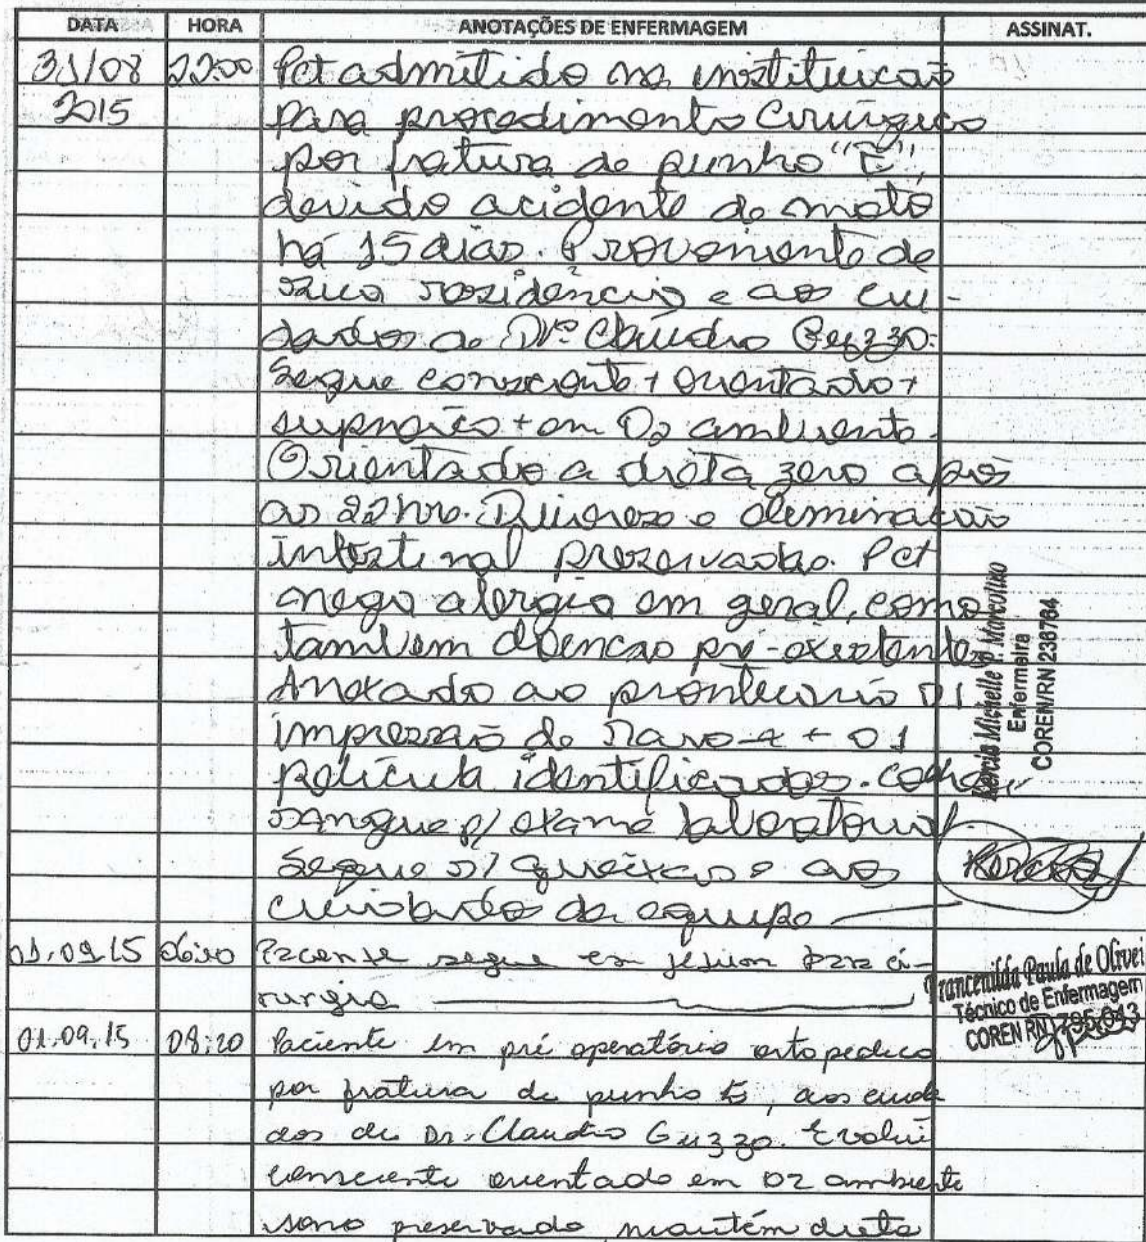 DATA HORA ANOTAÇÕES DE ENFERMAGEM ASSINAT.
31/08 22:00 Pct admitido na instituição
2015 para procedimento cirúrgico
por fratura de punho "E",
devido acidente de moto
há 15 dias. Proveniente de
sua residência e aos cui-
dados de Drº Claudio Guzzo.
Segue consciente + orientado +
eupneico + em O2 ambiente.
Orientado a dieta zero após
as 22hrs. Diurese e eliminação
intestinal preservadas. Pct
nega alergia em geral, como
também doenças pré-existentes
Anexado ao prontuário 01
impressão de Raio-x + 01
película identificados.
sangue p/ exame laboratorial.
Segue s/ queixas e aos
cuidados da equipe
Michelle P. Marcolino
Enfermeira
COREN/RN 236784
01.09.15 Paciente segue em jejum para ci-
rurgia
Francenilda Paula de Olivei
Técnico de Enfermagem
COREN RN 795.043
01.09.15 08:20 Paciente em pré operatório ortopedico
por fratura de punho E, aos cuida
dos de Dr. Claudio Guzzo. Evolui
consciente orientado em O2 ambiente
sono preservado, mantém dieta